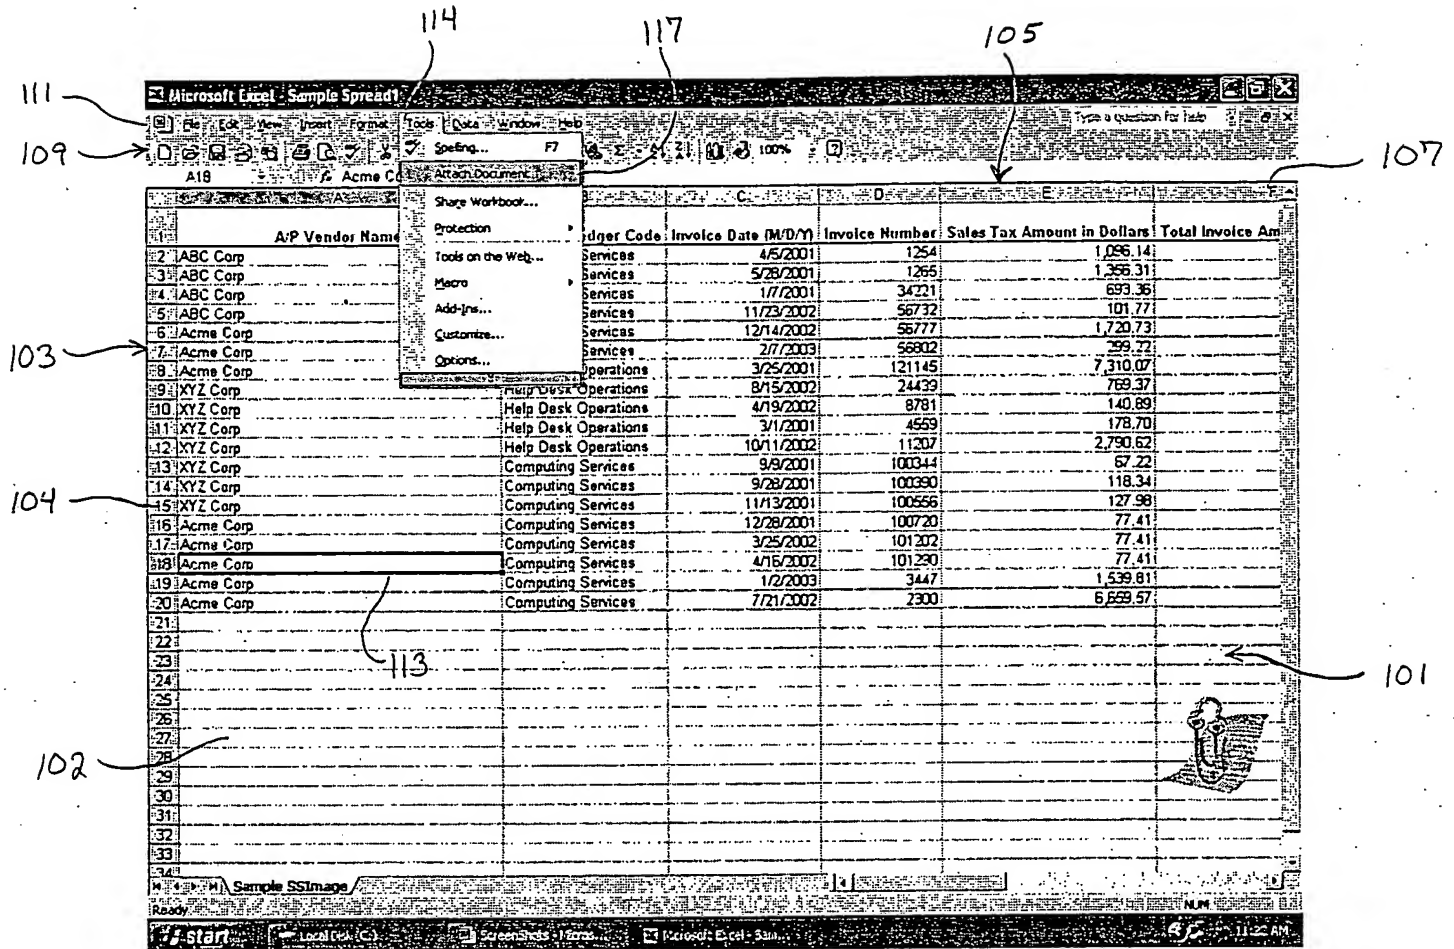 114
117
105
111
Microsoft Excel - Sample Spread1
File Edit View Insert Format Tools Data Window Help
Type a question for help
109
Spelling... F7
100%
107
A18
Acme Co
Attach Document...
A C D E F
Share Workbook...
Protection
Tools on the Web...
Macro
Add-Ins...
Customize...
Options...
1 A/P Vendor Name edger Code Invoice Date (M/D/Y) Invoice Number Sales Tax Amount in Dollars Total Invoice Am
2 ABC Corp Services 4/5/2001 1254 1,096.14
3 ABC Corp Services 5/28/2001 1265 1,356.31
4 ABC Corp Services 1/7/2001 34221 693.36
5 ABC Corp Services 11/23/2002 56732 101.77
6 Acme Corp Services 12/14/2002 56777 1,720.73
103
7 Acme Corp Services 2/7/2003 56802 299.72
8 Acme Corp Operations 3/25/2001 121145 7,310.07
9 XYZ Corp Help Desk Operations 8/15/2002 24439 769.37
10 XYZ Corp Help Desk Operations 4/19/2002 8781 140.89
11 XYZ Corp Help Desk Operations 3/1/2001 4559 178.70
12 XYZ Corp Help Desk Operations 10/11/2002 11207 2,790.62
13 XYZ Corp Computing Services 9/9/2001 100344 67.22
14 XYZ Corp Computing Services 9/28/2001 100390 118.34
104
15 XYZ Corp Computing Services 11/13/2001 100556 127.98
16 Acme Corp Computing Services 12/28/2001 100720 77.41
17 Acme Corp Computing Services 3/25/2002 101202 77.41
18 Acme Corp Computing Services 4/16/2002 101230 77.41
19 Acme Corp Computing Services 1/2/2003 3447 1,539.81
20 Acme Corp Computing Services 7/21/2002 2300 6,659.57
21
22
23
113
101
24
25
26
27
102
28
29
30
31
32
33
34
Sample SSImage
Ready
NUM
start Local Disk (C:) ScreenShots - Micros... Microsoft Excel - Sam... 11:22 AM